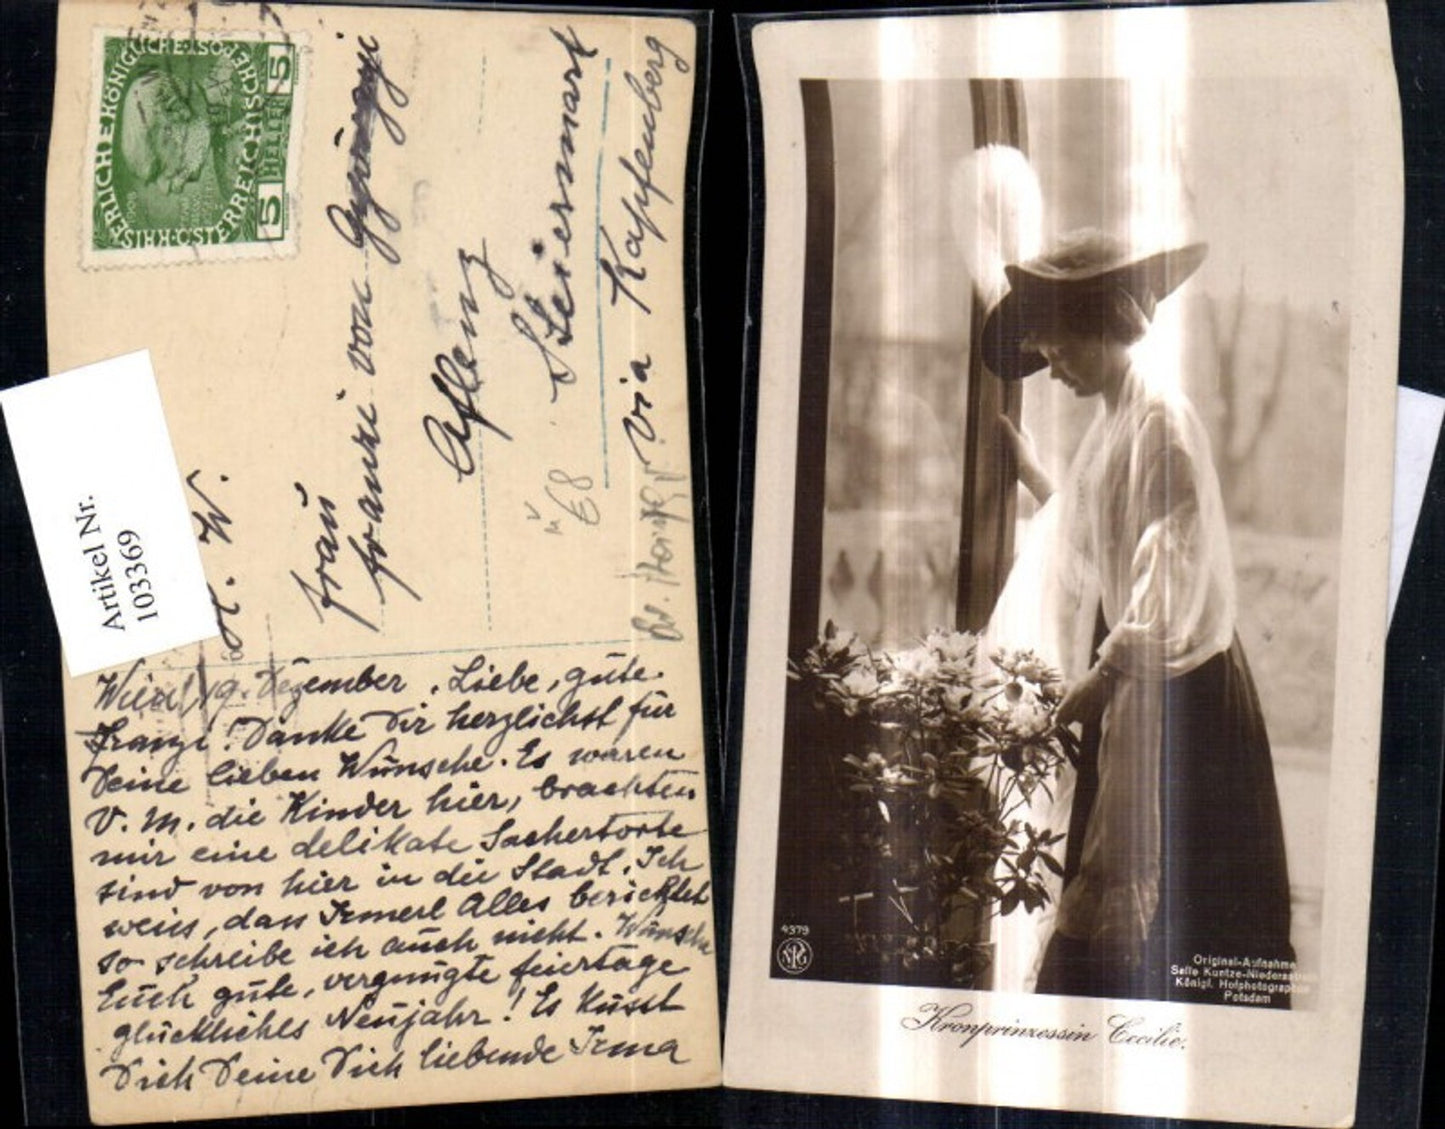 KAISERLICHE KÖNIGLICHE ÖSTERREICHISCHE POST
5 HELLER 5
Artikel Nr.
103369
W.
Frau
Franzi von
Aflenz
Steiermark
via Kapfenberg
Wien, 19. Dezember. Liebe, gute
Franzi! Danke Dir herzlichst für
Deine lieben Wünsche. Es waren
V. M. die Kinder hier, brachten
mir eine delikate Sachertorte
sind von hier in die Stadt. Ich
weiss, dass Irmerl Alles berichtet
so schreibe ich auch nicht. Wünsche
Euch gute, vergnügte Feiertage
glückliches Neujahr! Es küsst
Dich Deine Dich liebende Irma
4379
NPG
Original-Aufnahme
Selle Kuntze-Niederastroth
Königl. Hofphotographen
Potsdam
Kronprinzessin Cecilie.